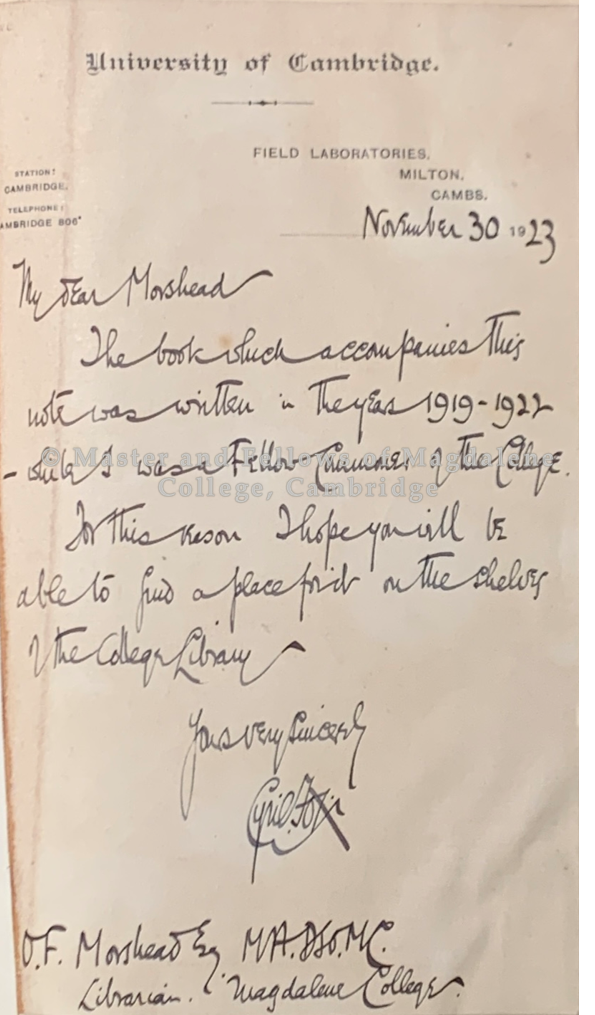 University of Cambridge.
FIELD LABORATORIES,
MILTON,
CAMBS.
STATION:
CAMBRIDGE.
TELEPHONE:
AMBRIDGE 806
November 30 1923
My dear Morshead
The book which accompanies this
note was written in the years 1919-1922
- while I was a Fellow-Commoner of the College.
© Master and Fellows of Magdalene
College, Cambridge
For this reason I hope you will be
able to find a place for it on the shelves
of the College Library
Yours very sincerely
Cyril Fox
O.F. Morshead Esq M.A. D.S.O. M.C.
Librarian. Magdalene College.